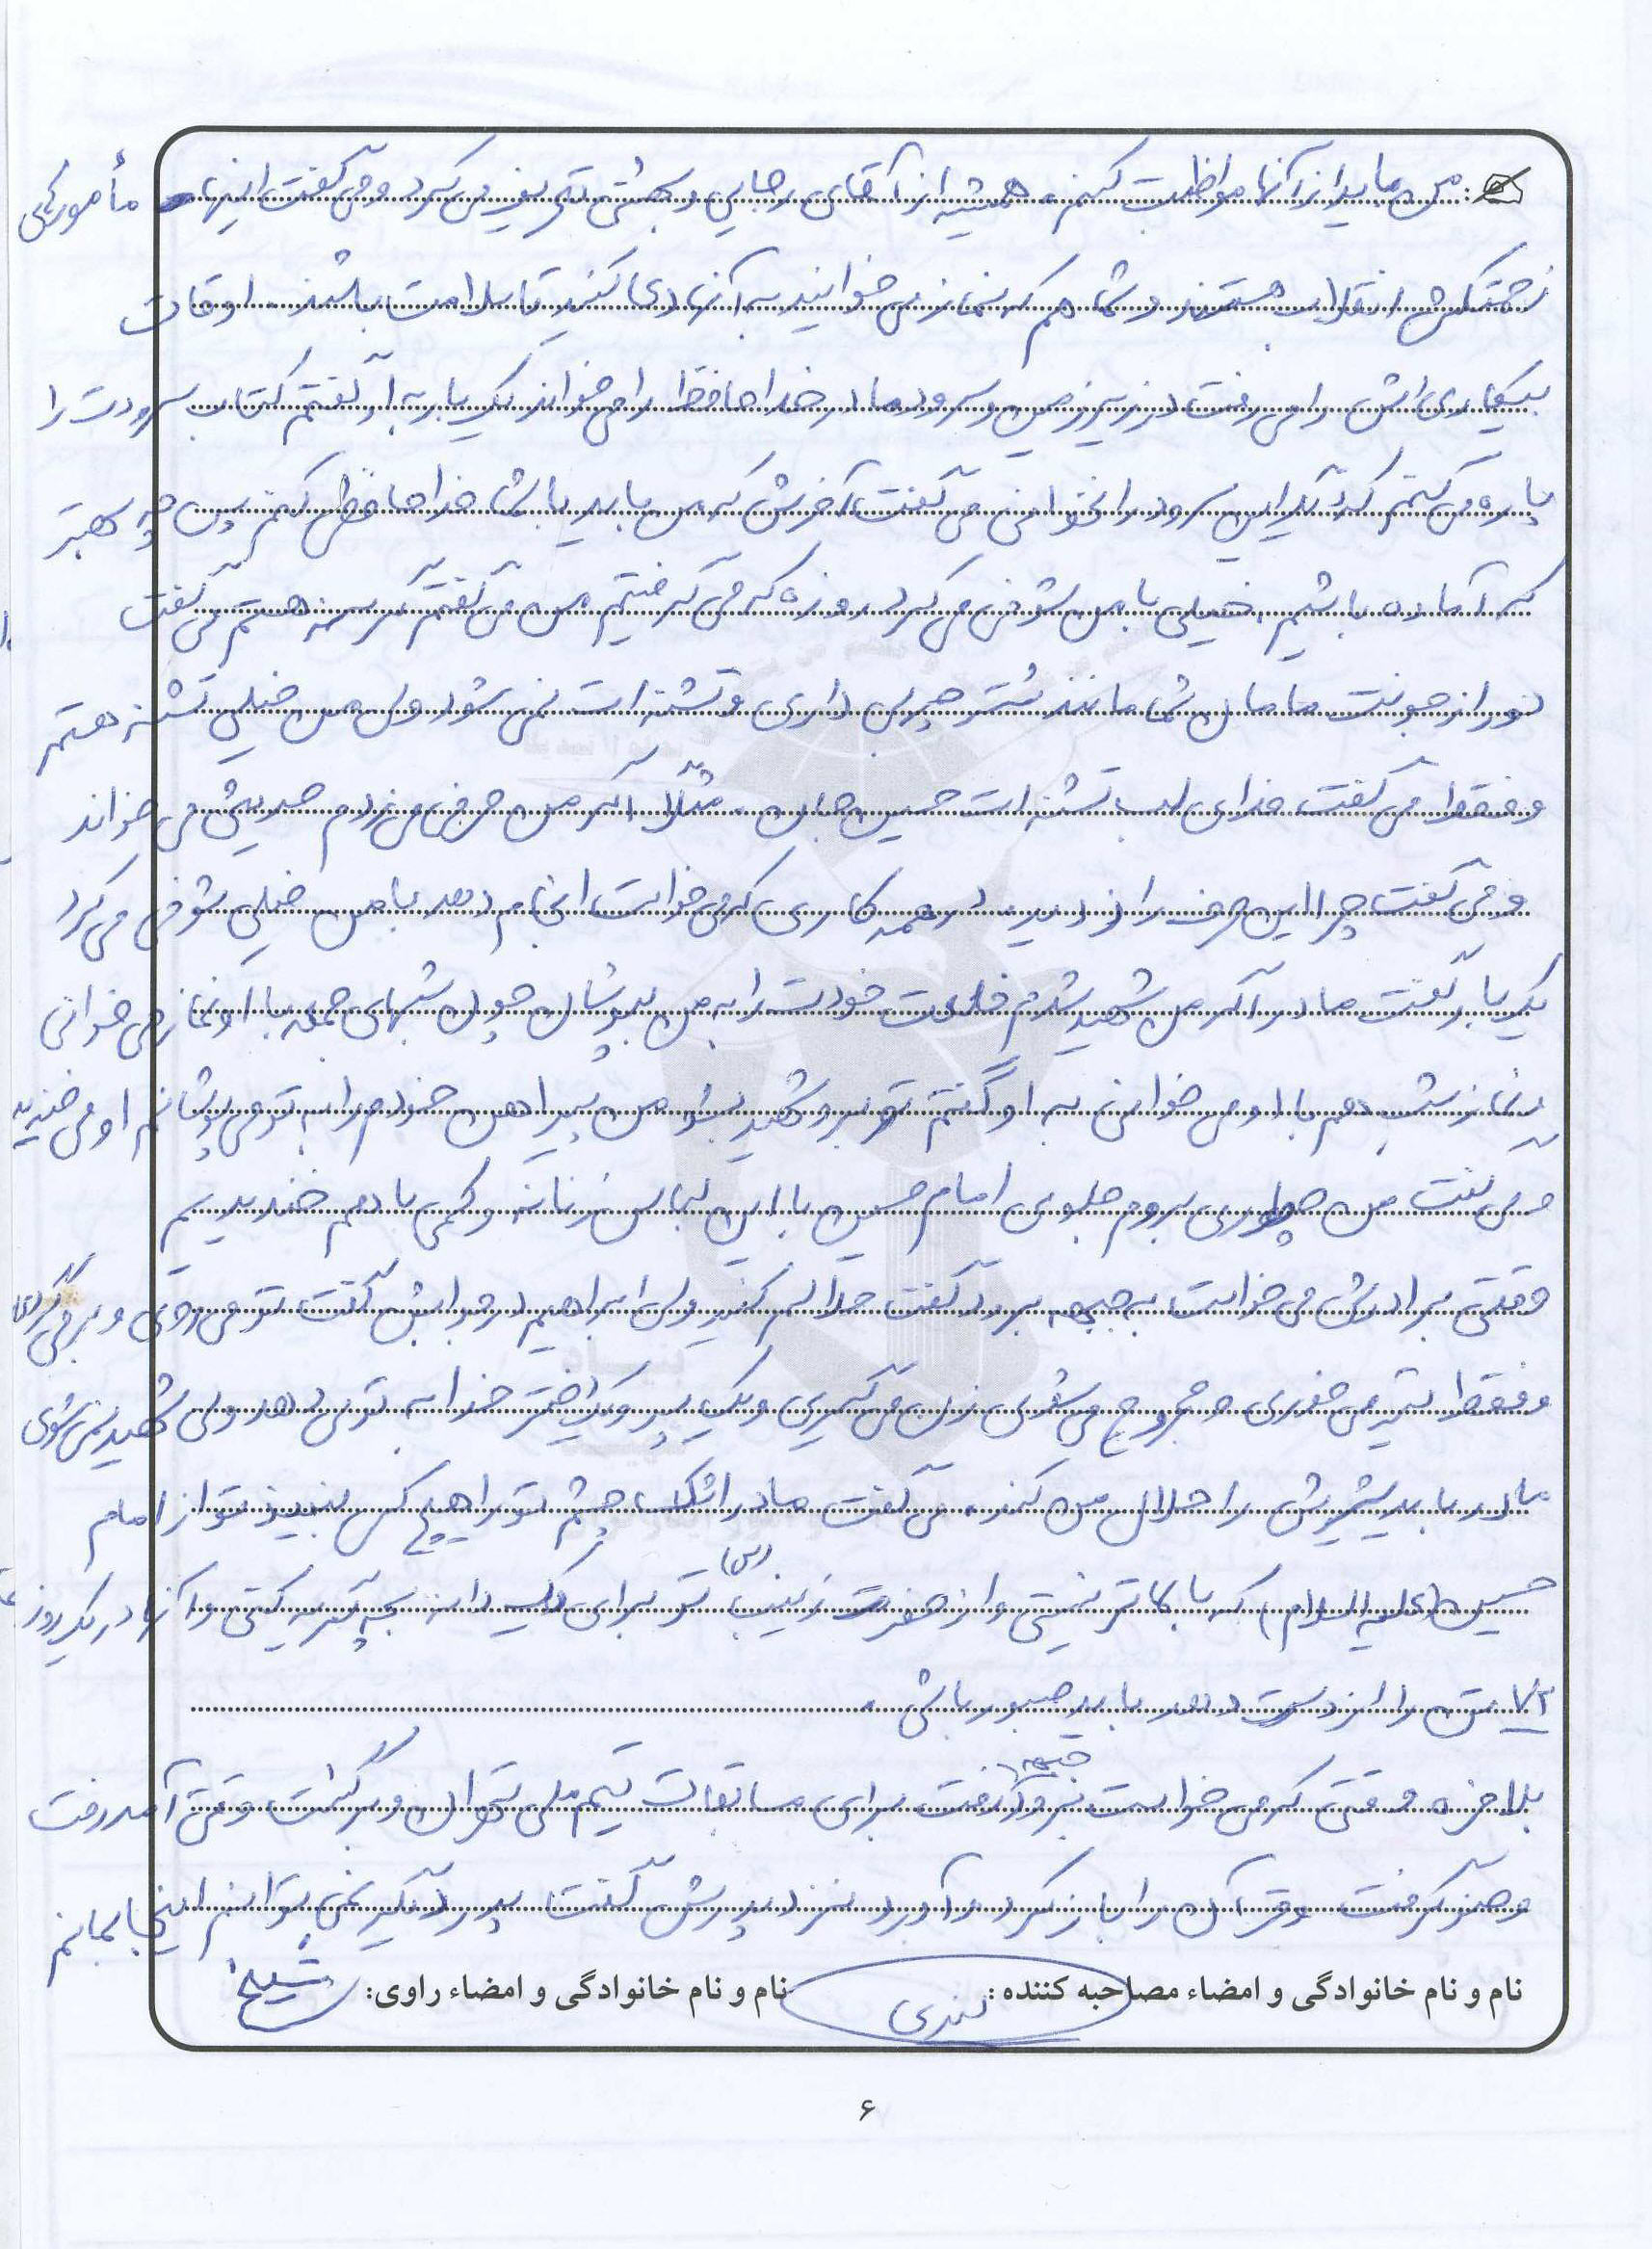 من باید از آنها مواظبت کنم. همیشه از آقای رجایی و بهشتی تعریف می کرد و می گفت اینها مأمورهای
زحمتکش انقلاب هستند و شما هم که نماز می خوانید به آنها دعا کنید تا سلامت باشند. اوقات
بیکاری اش را می رفت در زیرزمین و سرود مادر خداحافظ را می خواند یک بار به او گفتم کتاب سرودت را
پاره می کنم که دیگر این سرود را نخوانی می گفت آخرش که من باید با شما خداحافظی کنم پس چه بهتر
که آماده باشیم. خیلی با من شوخی می کرد روزه که می گرفتیم من می گفتم گرسنه هستم می گفت
دور از جونت مامان شما مانند شتر چربی داری و تشنه ات نمی شود ولی من خیلی تشنه هستم
و فقط می گفت فدای لب تشنه ات حسین جان. مثلاً اگر من حرفی می زدم حدیثی می خواند
و می گفت چرا این حرف را زدید. در همه کاری که می خواست انجام دهد با من خیلی شوخی می کرد
یک بار گفت مادر اگر من شهید شدم خلعت خودت را به من بپوشان چون شبهای جمعه با او نماز می خوانی
و نماز شب هم با او می خوانی به او گفتم تو برو شهید بشو من پیراهن خودم را به تو می پوشانم او می خندید
و می گفت من چطوری بروم جلوی امام حسین با این لباس زنانه و کمی با هم خندیدیم
وقتی برادرش می خواست به جبهه برود گفت حلالم کنید ولی ابراهیم در جوابش گفت تو می روی و برمی گردی
و فقط تیر می خوری و مجروح می شوی زن می گیری و یک پسر و یک دختر خدا به تو می دهد ولی شهید نمی شوی
مادر باید شیرش را حلال من کند. می گفت مادر اشک چشم تو را هیچ کس نبیند تو از امام
حسین (علیه السلام) که بالاتر نیستی و از حضرت زینب (س) تو برای یک دانه بچه گریه می کنی و آنها در یک روز
۷۲ تن را از دست دادند باید صبور باشی.
بلاخره وقتی که می خواست جبهه برود رفت برای مسابقات تیم ملی تهران و برگشت وقتی آمد رفت
وضو گرفت و قرآن را باز کرد و آورد نزد پدرش گفت پدر دیگر نمی توانم اینجا بمانم
نام و نام خانوادگی و امضاء مصاحبه کننده: نام و نام خانوادگی و امضاء راوی:
۶